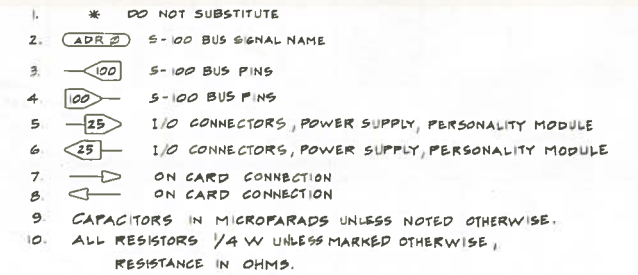 1. * DO NOT SUBSTITUTE
2. ADR Ø S-100 BUS SIGNAL NAME
3. 100 S-100 BUS PINS
4. 100 S-100 BUS PINS
5. 25 I/O CONNECTORS, POWER SUPPLY, PERSONALITY MODULE
6. 25 I/O CONNECTORS, POWER SUPPLY, PERSONALITY MODULE
7. ON CARD CONNECTION
8. ON CARD CONNECTION
9. CAPACITORS IN MICROFARADS UNLESS NOTED OTHERWISE.
10. ALL RESISTORS 1/4 W UNLESS MARKED OTHERWISE,
RESISTANCE IN OHMS.